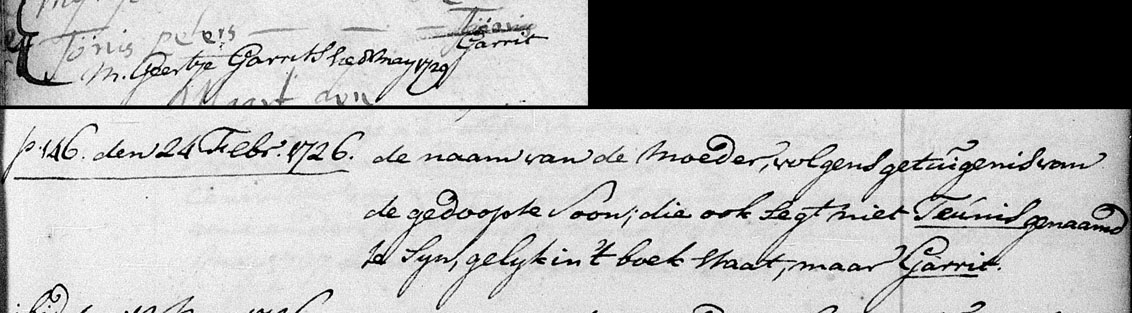 Tönis peters — — Tönis
Garrit
M. Geertje Garrits 8 May 1729
Maart den
p. 146. den 24 Febr. 1726. de naam van de Moeder, volgens getuigenis van
de gedoopte Soon; die ook segt niet Teunis genaamd
te Syn, gelyk in't boek staat, maar Garrit.